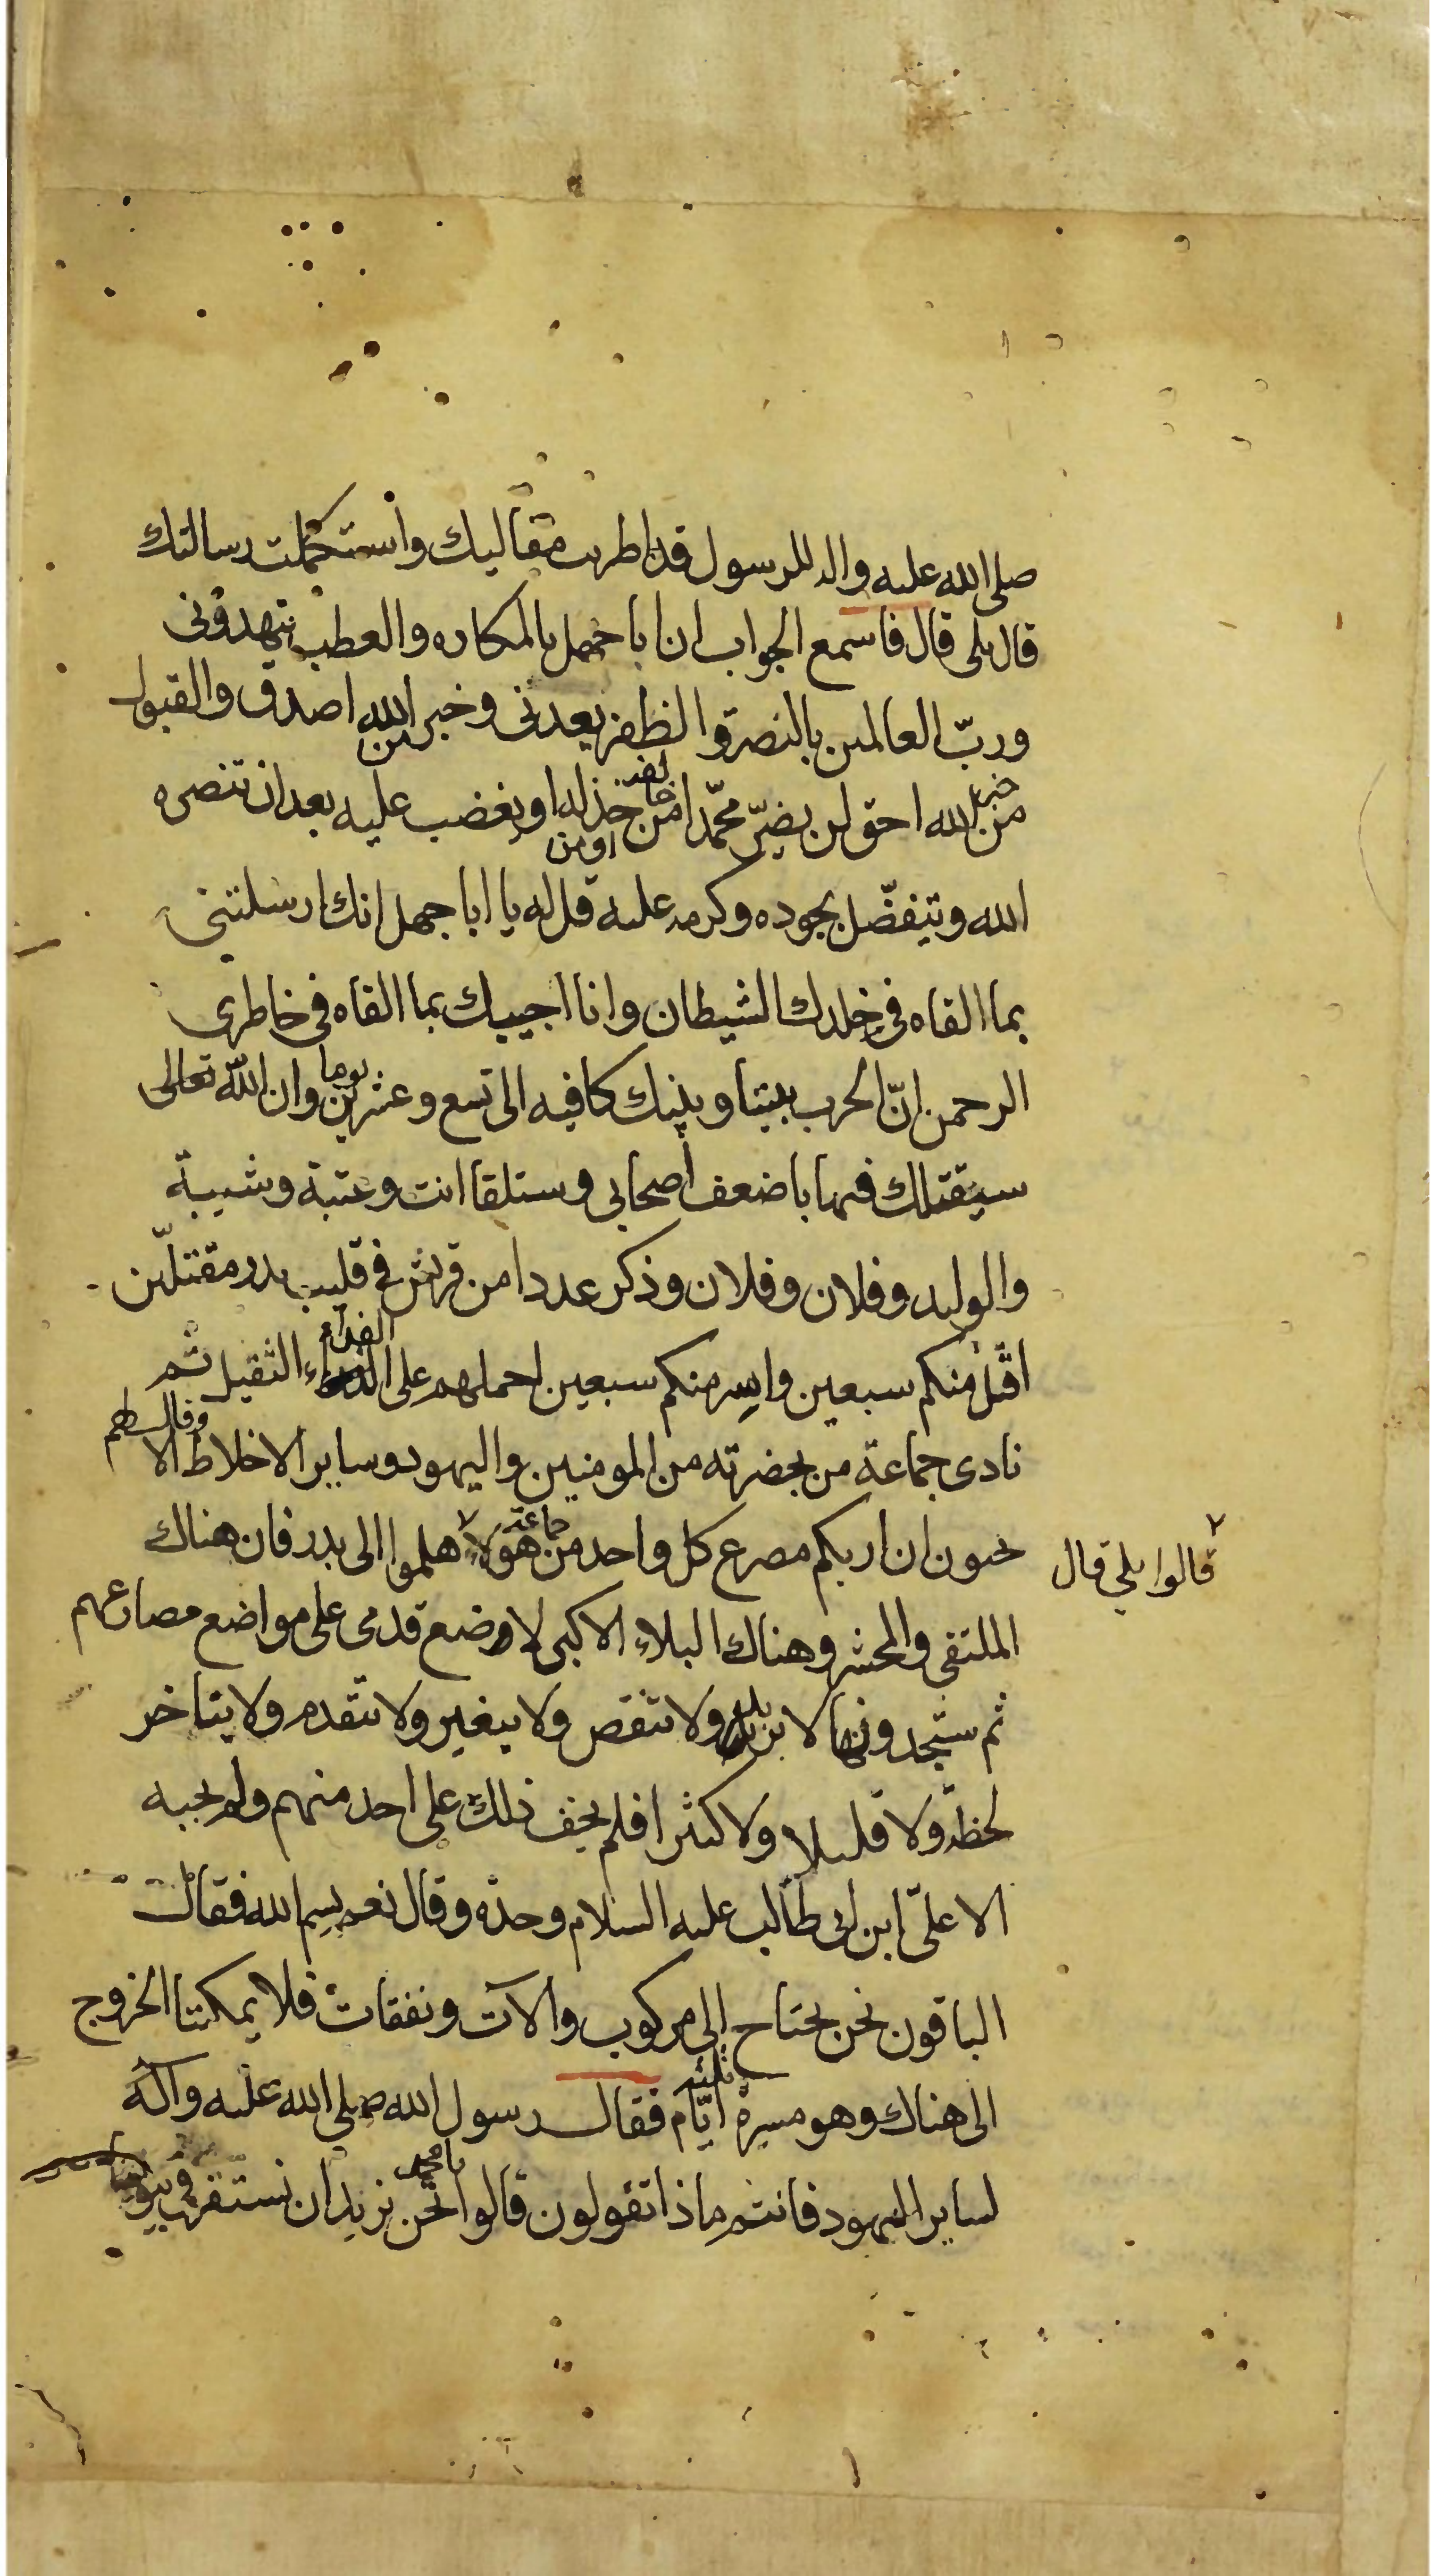 صلى الله عليه واله للرسول قد اطريت مقاليك واستكملت رسالتك
قال بلى قال فاسمع الجواب ان ابا جهل بالمكاره والعطب يتهددنى
ورب العالمين بالنصرة والظفر يعدنى وخبر الله اصدق والقبول
من الله احق لن يضر محمدا من خذله او يغضب عليه بعد ان تنصره
خبر
خالفه
اومن
الله ويتفضل بجوده وكرمه عليه قل له يا ابا جهل انك ارسلتنى
بما القاه فى خلدك الشيطان وانا اجيبك بما القاه فى خاطرى
الرحمن ان الحرب بيننا وبينك كافيه الى تسع وعشرين يوما وان الله تعالى
سيقتلك فيها باضعف اصحابى وستلقا انت وعتبة وشيبة
والوليد وفلان وفلان وذكر عددا من قريش فى قليب بدر مقتلين
اقتل منكم سبعين واسر منكم سبعين احملهم على الفداء الثقيل ثم
نادى جماعة من بحضرته من المومنين واليهود وساير الاخلاط وقال لهم الا
تحبون ان اريكم مصرع كل واحد من جماعة هولاء هلموا الى بدر فان هناك
قالوا بلى قال
الملتقى والمحشر وهناك البلاء الاكبر لاوضع قدمى على مواضع مصارعهم
ثم ستجدونها لا تزيد ولا تنقص ولا يتغير ولا تتقدم ولا يتاخر
لحظة ولا قليلا ولا كثيرا فلم يخف ذلك على احد منهم ولم يجبه
الا على ابن ابى طالب عليه السلام وحده وقال نعم بسم الله فقال
الباقون نحن نحتاج الى مركوب والات ونفقات فلا يمكننا الخروج
الى هناك وهو مسيرة ثلثة ايام فقال رسول الله صلى الله عليه وآله
لساير اليهود فانتم ماذا تقولون قالوا يا محمد نحن نريد ان نستقر فى بيوتنا